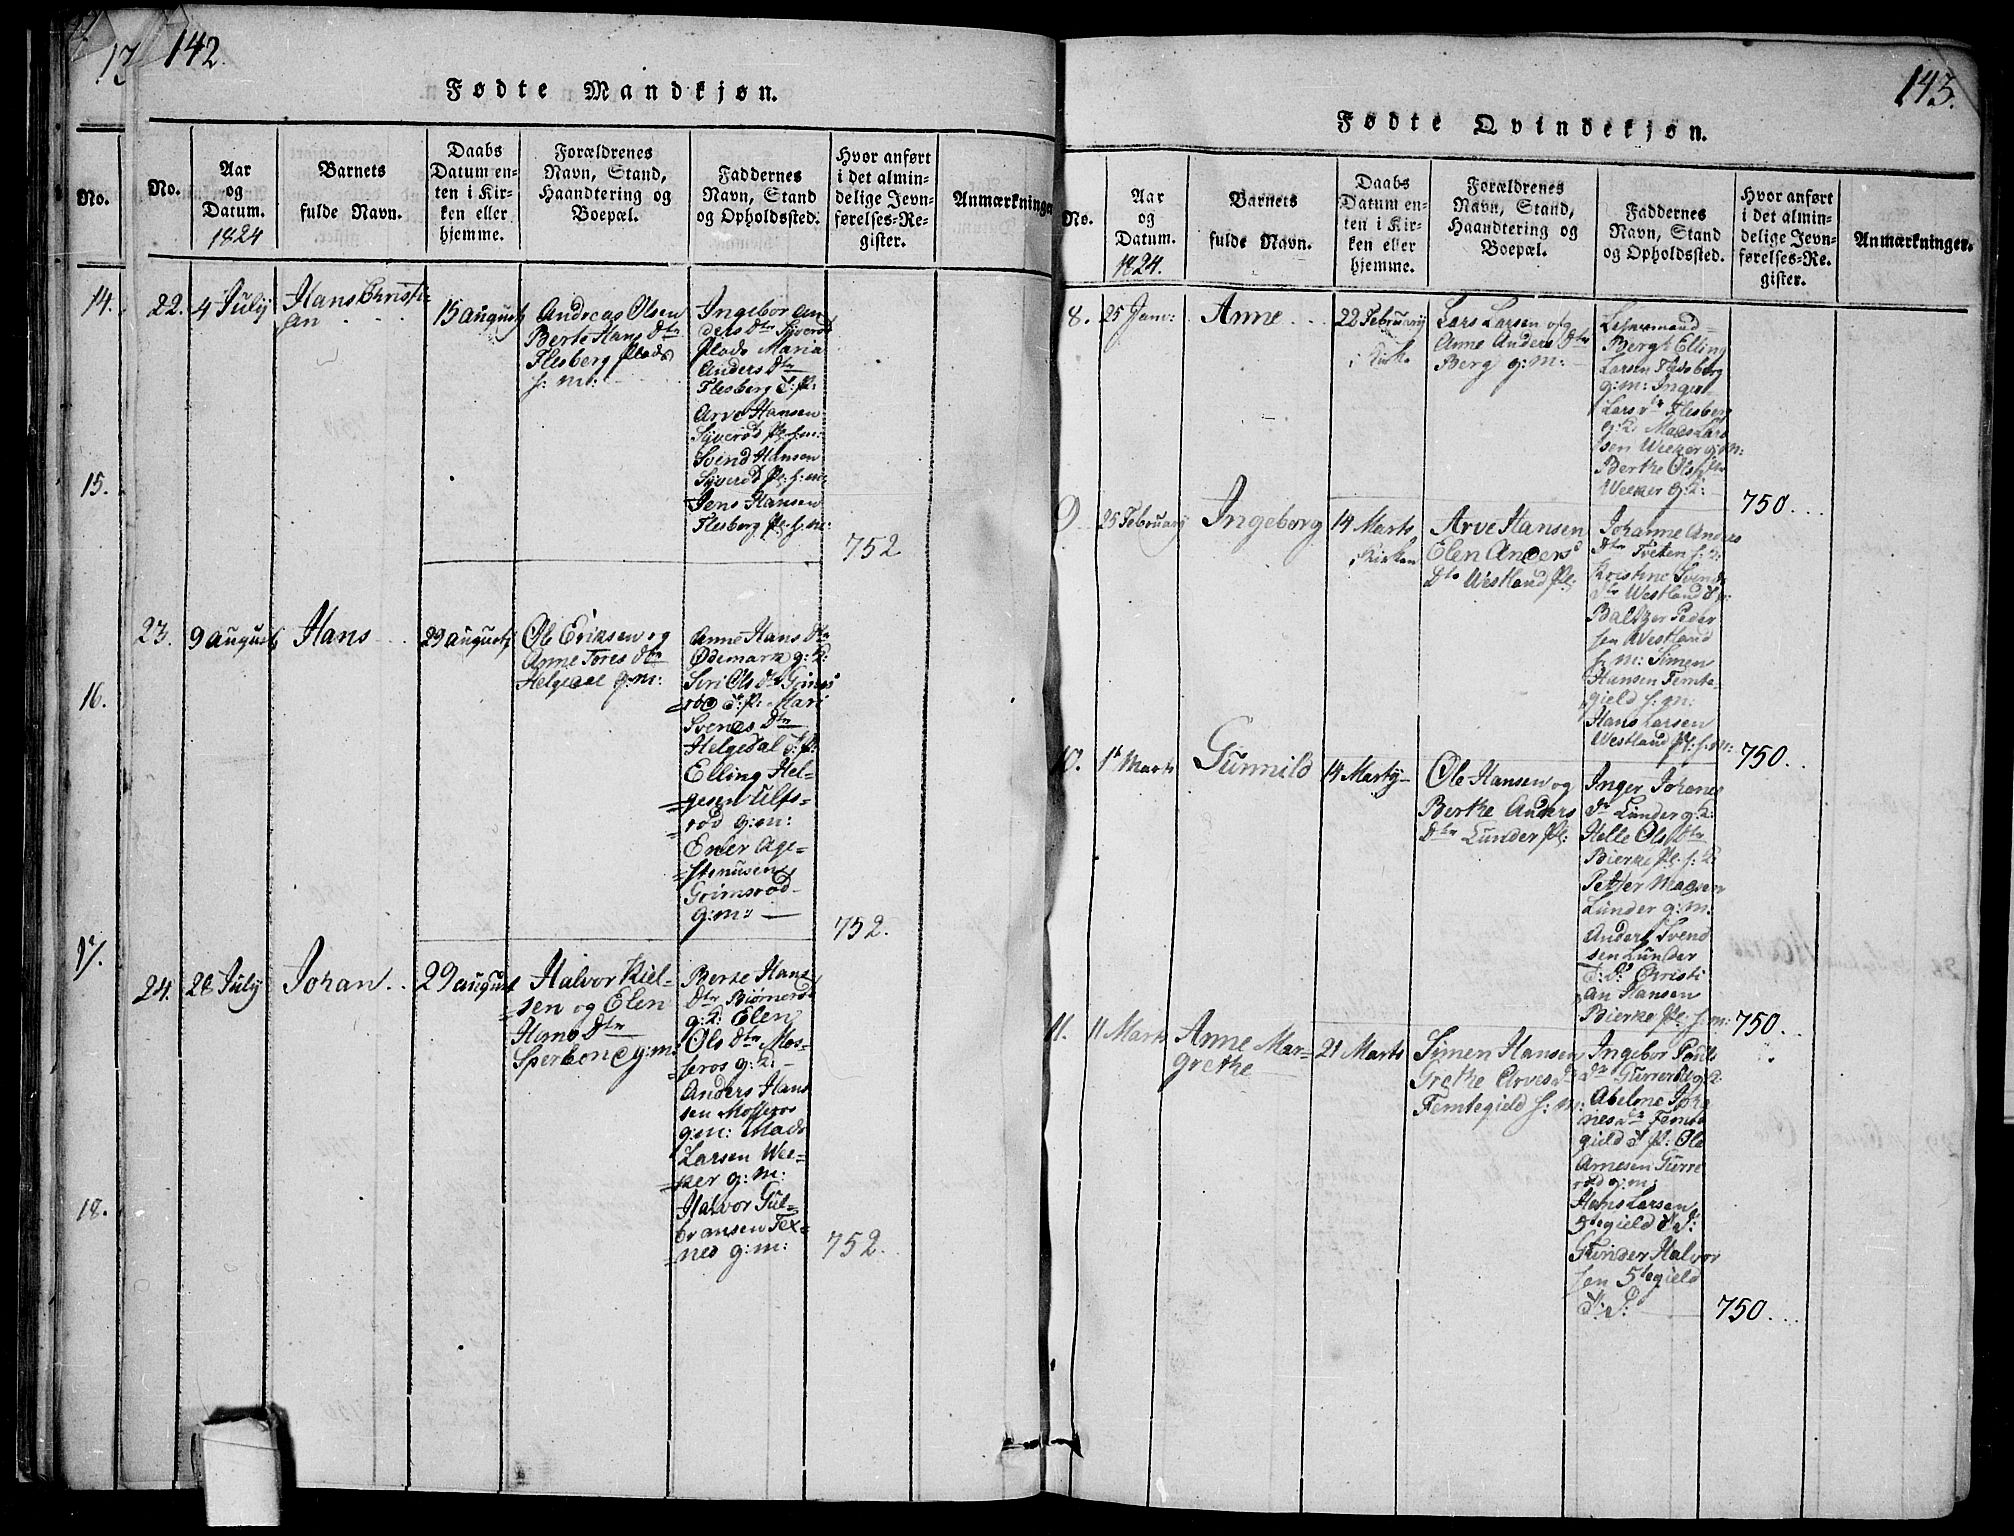 13
142.
Fødte Mandkjøn.
No.
No.
Aar
og
Datum.
1824
Barnets
fulde Navn.
Daabs
Datum en-
ten i Kir-
ken eller
hjemme.
Forældrenes
Navn, Stand,
Haandtering og
Boepæl.
Faddernes
Navn, Stand
og Opholdssted.
Hvor anført
i det almin-
delige Jevn-
førelses-Re-
gister.
Anmærkninger
14.
15.
16.
17.
18.
22.
4 July
Hans Christi-
an
15 august
Andreas Olsen
Berte Hans dtr
Flesberg Plads
f: m:
Ingebor An
ders dtr Syverød
Plads Maria
Anders Dtr
Flesberg T: pl:
Arve Hansen
Syverød pl: f: m:
Svend Hansen
Syverød Pl: f: m:
Jens Hansen
Flesberg pl: f: m:
752
23.
9 august
Hans
29 august
Ole Eriksen og
Anne Tores dtr
Helgedal g: m:
Anne Hans dtr
Ødemark g: k:
Siri Ols dtr Grims
rød T: p: Mari
Svends Dtr
Helgedal T: P:
Elling Hel-
gesen Ulfs-
rød g: m:
Ener Age-
stenusen
Grimsrød
g: m:
752.
24.
28 July
Johan
29 august
Halvor Kiel-
sen og Elen
Hans Dtr
Sperbone g: m:
Berte Hans
Dtr Biørnerød
g: k: Elen
Ols dtr Mos-
feros g: k:
Anders Hans
sen Mosseros
g: m: Mads
Larsen Wee-
ker g: m:
Halvor Gul-
bransen Tex-
ned g: m:
752.
143.
Fødte Qvindekjøn.
No.
Aar
og
Datum.
1824.
Barnets
fulde Navn.
Daabs
Datum en-
ten i Kir-
ken eller
hjemme.
Forældrenes
Navn, Stand,
Haandtering og
Boepæl.
Faddernes
Navn, Stand
og Opholdssted.
Hvor anført
i det almin-
delige Jevn-
førelses-Re-
gister.
Anmærkninger.
8.
25 Jan:
Anne
22 February
i Kirke
Lars Larsen og
Anne Anders Dtr
Berg g: m:
Lehnsmand
Berg: Elling
Larsen Flesberg
g: m: Inger
Lars dr Flesberg
g: k: Mads Lar
sen Weeker g: m:
Berthe Ols dtr
Weeker g: k:
750.
9
25 February
Ingeborg
14 Marts
Kirken
Arve Hansen
Elen Anders
Dtr Westland Pl:
Johanne Anders
Dtr Tveten f: k:
Kristine Svends
dtr Westland T p:
Baltzer Peder
sen Westland
f: m: Simen
Hansen Femte-
gield f: m:
Hans Larsen
Westland Pl: f: m:
750.
10.
1t Marts
Gunnild
14 Marty
Ole Hansen og
Berthe Anders
Dtr Lunder Pl:
Inger Johanes
Dr Lunder g: k:
Helle Ols Dtr
Bierke pl: f: k:
Petter Madsen
Lunder g: m:
Anders Svend
sen Lunder
T: D: Christi
an Hansen
Bierke pl: f: m:
750.
11.
11 Marts
Anne Mar-
grethe
21 Marts
Simen Hansen
Grethe Arves dr
Femtegield f: m:
Ingebor Pauls
dtr Gurrerød g: k:
Abelone Joha
nes dr Femte
gield T pl: Ole
Arnesen Gurre
rød g: m:
Hans Larsen
5tegield T. D:
Gunder Halvor
sen 5tegield
T: D:
750.